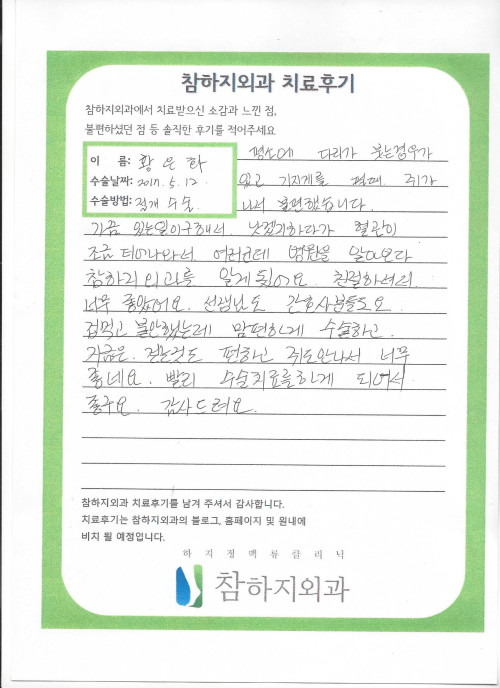 참하지외과 치료후기
참하지외과에서 치료받으신 소감과 느낀 점,
불편하셨던 점 등 솔직한 후기를 적어주세요
이 름: 황은하
수술날짜: 2017. 5. 12
수술방법: 절개 수술
평소에 다리가 붓는경우가
있고 기지개를 펼때 쥐가
나서 불편했습니다.
가끔 있는일이구해서. 낫겠지하다가 혈관이
조금 튀어나와서 여러군데 병원을 알아보다
참하지외과를 알게됬어요. 친절하셔서
너무 좋았어요. 선생님도 간호사분들도요.
겁먹고 불안했는데 맘편하게 수술하고.
지금은. 걷는것도 편하고 쥐도안나서 너무
좋네요. 빨리 수술치료를하게 되어서
좋구요. 감사드려요.
참하지외과 치료후기를 남겨 주셔서 감사합니다.
치료후기는 참하지외과의 블로그, 홈페이지 및 원내에
비치 될 예정입니다.
하지정맥류클리닉
참하지외과